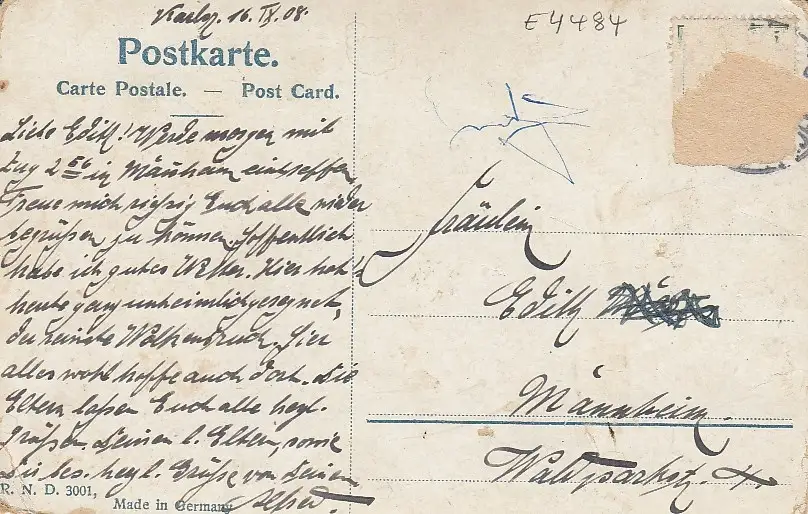 Karlsr. 16. IX. 08.
E4484
Postkarte.
Carte Postale. — Post Card.
Liebe Edith! Werde morgen mit
Zug 2 56 in Mannheim eintreffen
Freue mich riesig Euch alle wieder
begrüßen zu können. Hoffentlich
habe ich gutes Wetter. Hier hat's
heute ganz unheimlich geregnet,
der reinste Wolkenbruch. Hier
alles wohl hoffe auch dort. Die
Eltern lassen Euch alle herzl.
grüßen. Deinen l. Eltern, sowie
Dir bes. herzl. Grüße von Deinem
Alfred.
Fräulein
Edith
Mannheim.
Waldparkstr.
R. N. D. 3001,
Made in Germany